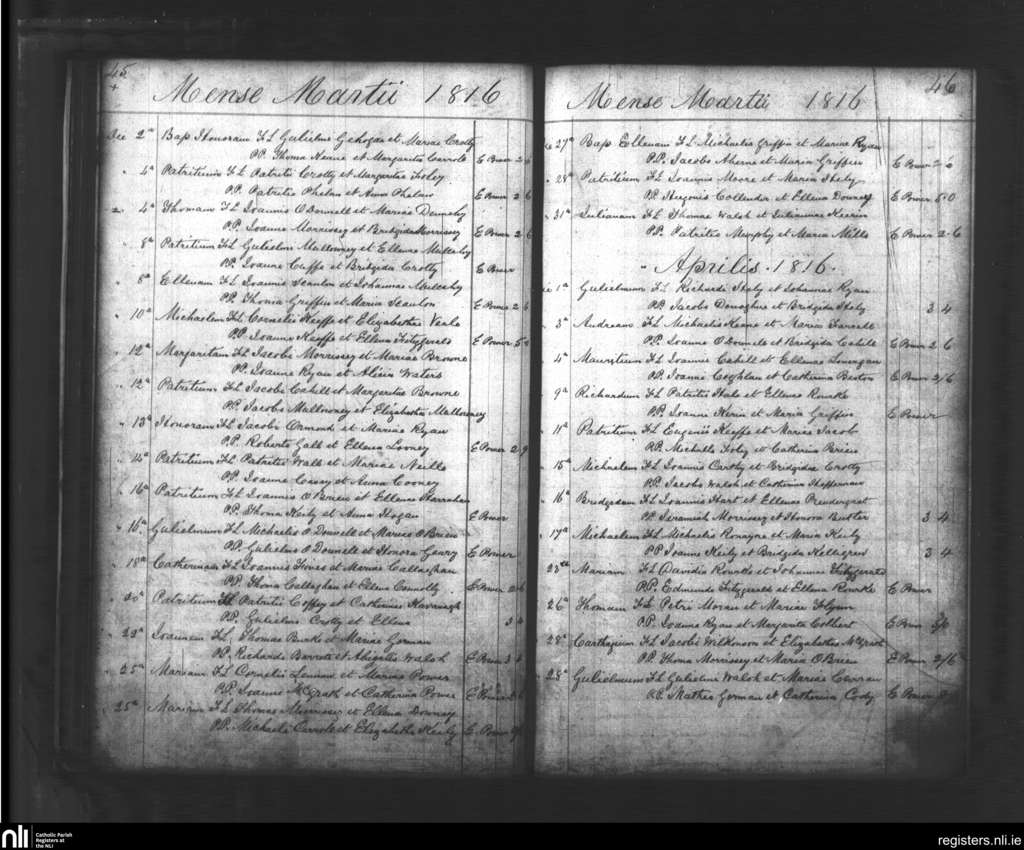 45
Mense Martii 1816
Die 2a Bap Honoram F.L Gulielmi Gehogan et Mariae Crotty
P.P. Thoma Keane et Margarita Carrole E Power 2 6
4a Patritium F.L Patritii Crotty et Margaritae Foley
P.P. Patritio Phelan et Anna Phelan E Power 2 6
4a Thomam F.L Joannis O Donnell et Mariae Dennehy
P.P. Joanne Morrissey et Bridgida Morrissey E Power 2 6
8a Patritium F.L Gulielmi Mullowney et Ellenae Mulcahy
P.P. Joanne Cuffe et Bridgida Crotty E Power
8a Ellenam F.L Joannis Scanlon et Johannae Mulcahy
P.P. Thoma Griffin et Maria Scanlon E Power 2 6
10a Michaelem F.L Cornelii Keeffe et Elizabethae Veale
P.P. Joanne Keeffe et Ellena Fitzgerald E Power 5 0
12a Margaritam F.L Jacobi Morrissey et Mariae Browne
P.P. Joanne Ryan et Alicia Waters
12a Patritium F.L Jacobi Cahill et Margaritae Browne
P.P. Jacobo Mullowney et Elizabetha Mullowney
13a Honoram F.L Jacobi Ormond et Mariae Ryan
P.P. Roberto Galle et Ellena Looney E Power 2 9
Patritium F.L Patritii Walle et Mariae Neille
P.P. Joanne Casey et Anna Cooney
16a Patritium F.L Joannis O Brien et Ellenae Harrahan
P.P. Thoma Keily et Anna Hogan E Power
16a Gulielmum F.L Michaelis O Donnell et Mariae O Brien
P.P. Gulielmo O Donnell et Honora Geary E Power
18a Catherinam F.L Joannis Hines et Mariae Callaghan
P.P. Thoma Callaghan et Ellena Connolly E Power 2 6
20a Patritium F.L Patritii Coffey et Catherinae Kavanagh
P.P. Gulielmo Crotty et Ellena 3 4
Joannem F.L. Thomae Burke et Mariae Gorman
P.P. Richardo Barrett et Abigail Walsh E Power 3 4
25a Mariam F.L Cornelii Lennan et Mariae Power
P.P. Joanne McGrath et Catherina Power E Power
25a Mariam F.L Thomae Morrissey et Ellena Downey
P.P. Michaele Carrole et Elizabetha Keily E Power
46
Mense Martii 1816
27a Bap Ellenam F.L Michaelis Griffin et Mariae Ryan
P.P. Jacobo Aherne et Maria Griffin E Power 2 6
28a Patritium F.L Joannis Moore et Maria Healy
P.P. Hugonis Collender et Ellena Downey E Power 5 0
31a Julianam F.L Thomae Walsh et Julianae Keerin
P.P. Patritio Murphy et Maria Mills E Power 2 6
Aprilis 1816.
1a Gulielmum F.L Richardi Healy et Johannae Ryan
P.P. Jacobo Donoghue et Bridgida Healy 3 4
3a Andream F.L Michaelis Keane et Maria Farrell
P.P. Joanne O Donnele et Bridgida Cahill E Power 2 6
4a Mauritium F.L Joannis Cahill et Ellenae Lonergan
P.P. Joanne Coghlan et Catherina Barton E Power 2/6
9a Richardum F.L Patritii Hale et Ellenae Rourke
P.P. Joanne Kerin et Maria Griffin E Power
11a Patritium F.L Eugenii Keeffe et Mariae Jacob
P.P. Michaele Foley et Catherina Brien
15a Michaelem F.L Joannis Carthy et Bridgidae Crotty
P.P. Jacobo Walsh et Catherina Heffernan
16a Bridgidam F.L Joannis Hart et Ellenae Prendergast
P.P. Jeremiah Morrissey et Honora Butler 3 4
17a Michaelem F.L Michaelis Ronayne et Maria Keily
P.P. Joanne Keily et Bridgida Kellegrew 3 4
Mariam F.L Davidis Rourke et Johannae Fitzgerald
P.P. Edmundo Fitzgerald et Ellena Rourke E Power
26a Thomam F.L Petri Moran et Mariae Flynn
P.P. Joanne Ryan et Margarita Colbert E Power
28a Carthagium F.L Jacobi Wilkinson et Elizabethae McGrath
P.P. Thoma Morrissey et Maria O Brien E Power 2/6
28a Gulielmum F.L Gulielmi Walsh et Mariae Curran
P.P. Matheo Gorman et Catherina Cody E Power
nli
Catholic Parish
Registers at
the NLI
registers.nli.ie